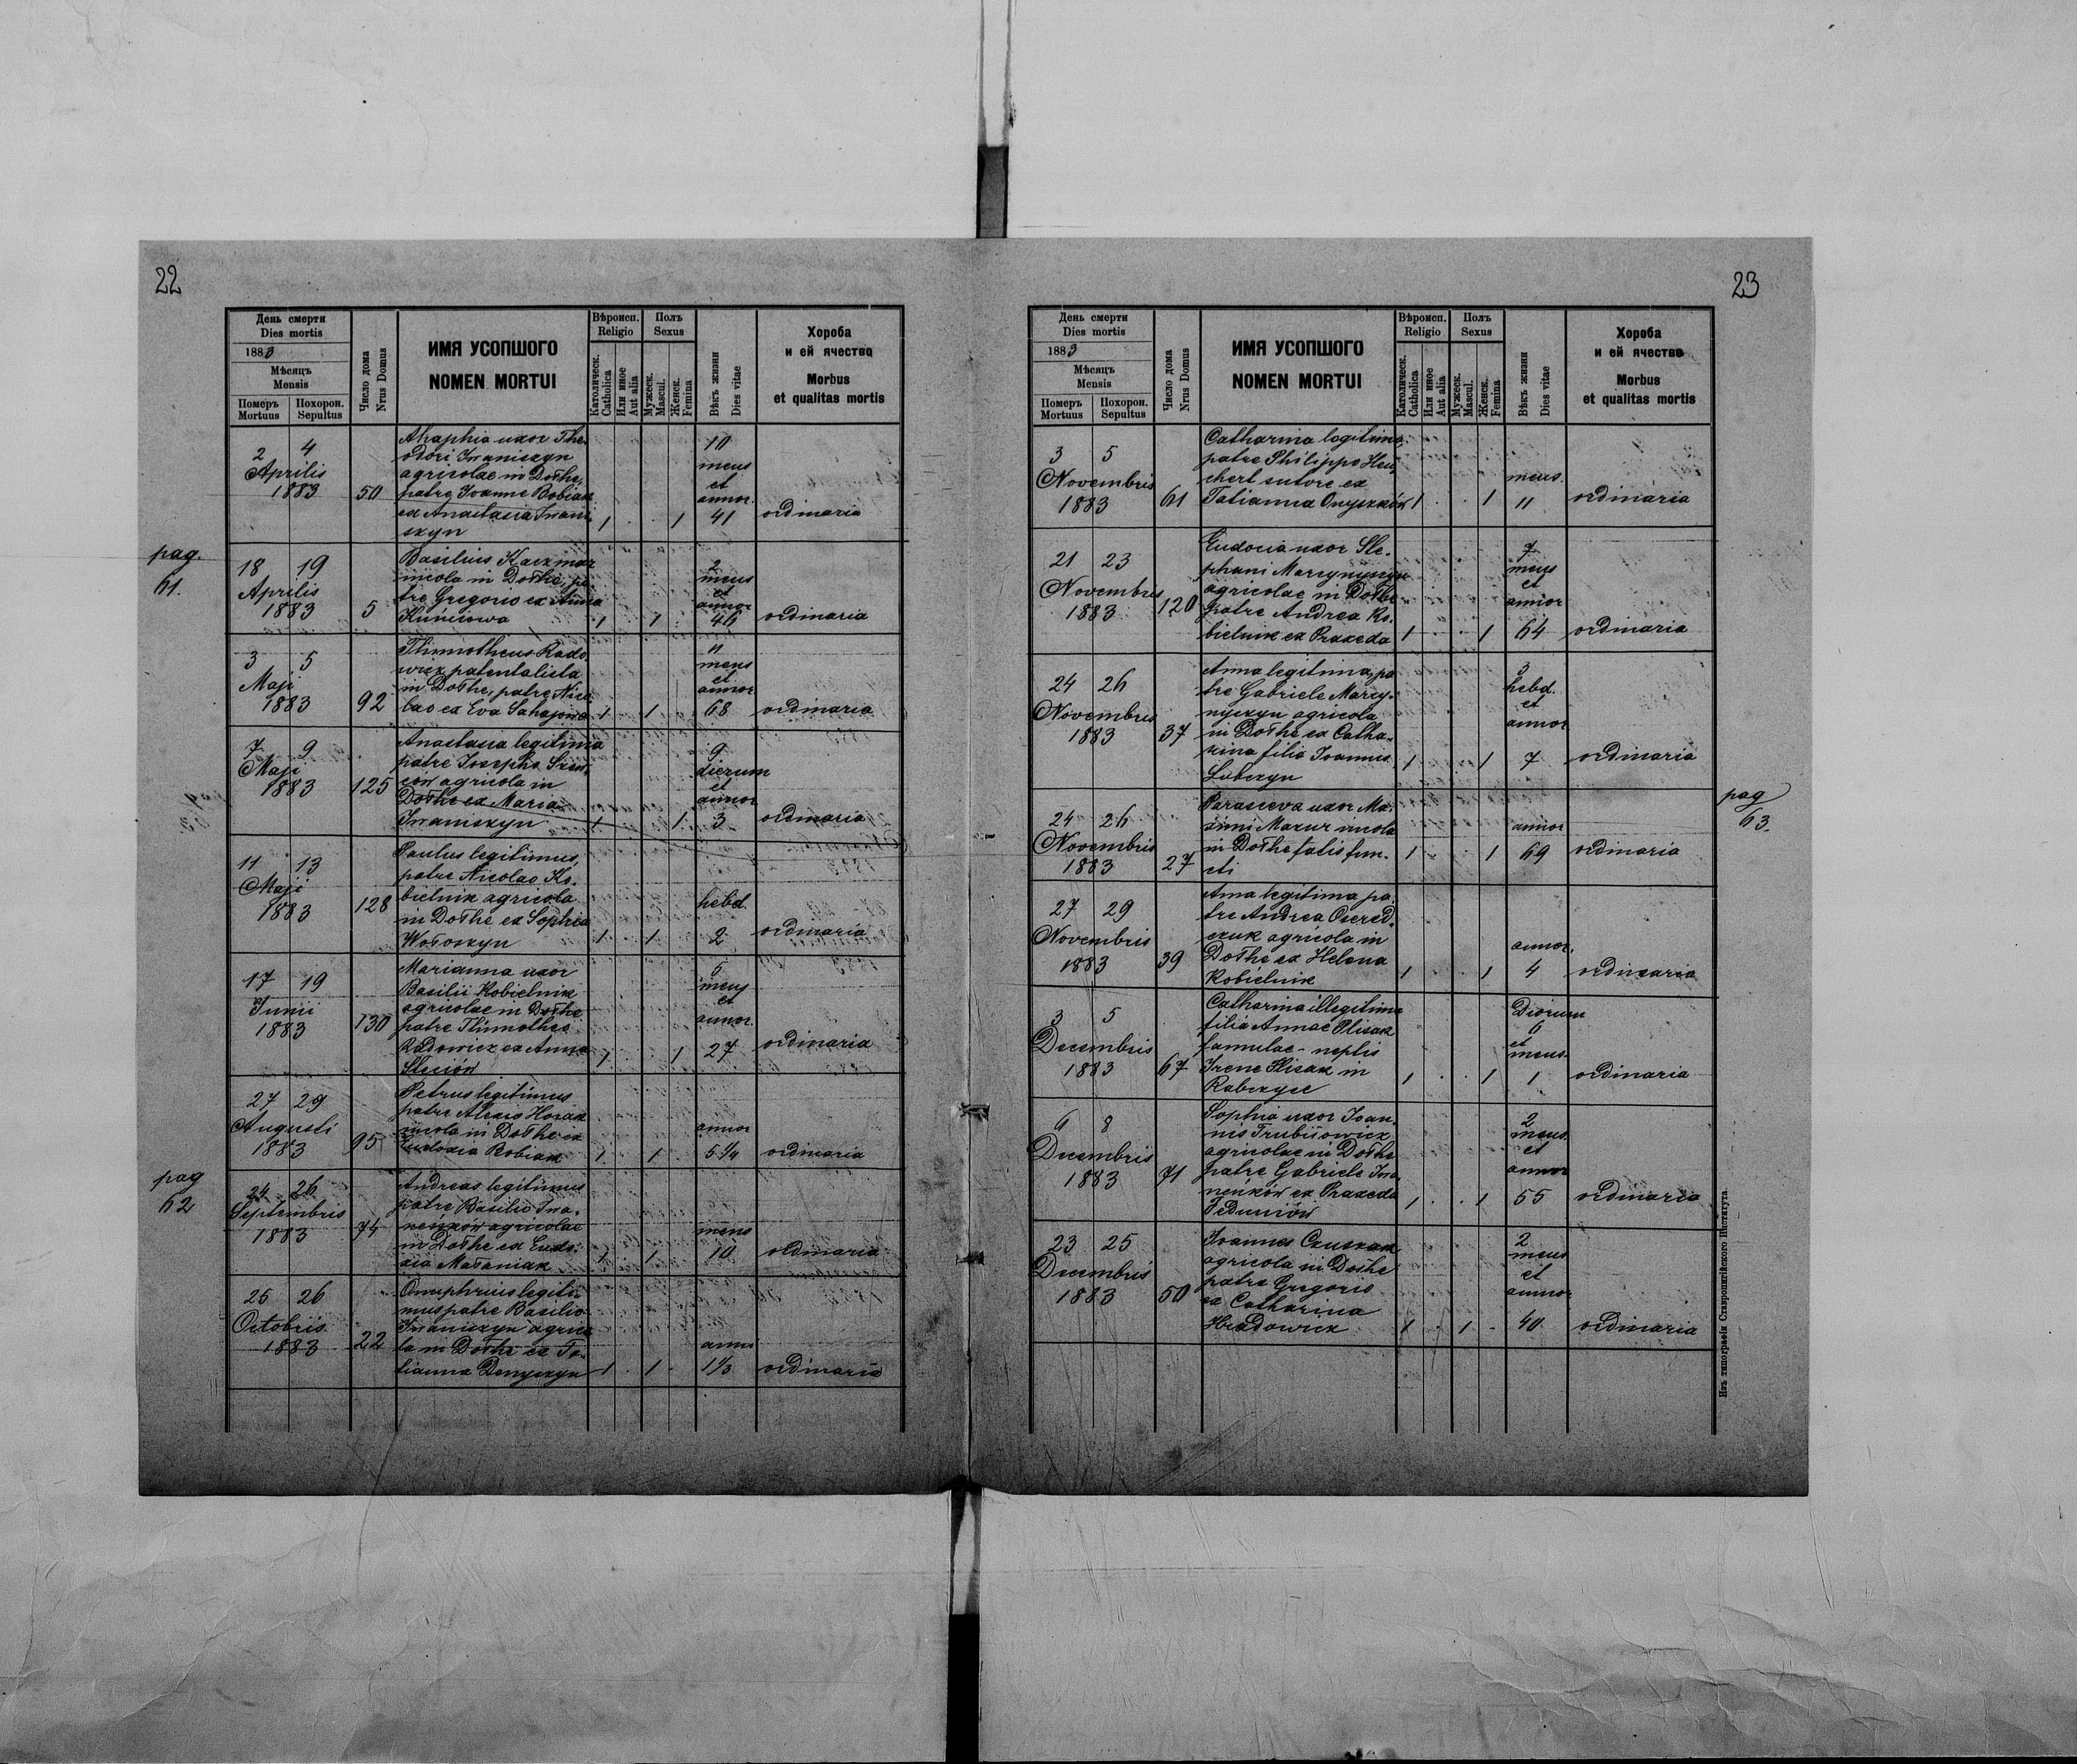 22
День смерти
Dies mortis
1883
Мѣсяцъ
Mensis
Померъ Похорон.
Mortuus Sepultus
Число дома
Nrus Domus
ИМЯ УСОПШОГО
NOMEN MORTUI
Вѣроисп.
Religio
Католическ.
Catholica
Или иное
Aut alia
Полъ
Sexus
Мужеск.
Mascul.
Женск.
Femina
Вѣкъ жизни
Dies vitae
Хороба
и ей ячество
Morbus
et qualitas mortis
2 4
Aprilis
1883
50
Ahaphia uxor The-
odori Iwaniszyn
agricolae in Dołhe,
patre Joanne Bobiak
ex Anastasia Iwani-
szyn
1 1
10
mens
et
annor.
41
ordinaria
pag.
61.
18 19
Aprilis
1883
5
Basilius Kaczmar
incola in Dołhe, pa-
tre Gregorio ex Anna
1 1
2
mens
et
annor
46
ordinaria
3 5
Maji
1883
92
Thimotheus Rado-
wicz patentalista
in Dołhe, patre Nico-
lao ex Eva
1 1
11
mens
et
annor
68
ordinaria
7 9
Maji
1883
125
Anastasia legitima
patre Josepho
agricola in
Dołhe ex Maria
Iwaniszyn
1 1
9
dierum
et
annor
3
ordinaria
11 13
Maji
1883
128
Paulus legitimus
patre Nicolao Ko-
bielnik agricola
in Dołhe ex Sophia
Wołoszyn
1 1
hebd.
2
ordinaria
17 19
Junii
1883
130
Marianna uxor
Basilii Kobielnik
agricolae in Dołhe
patre Thimotheo
Radowicz ex Anna
Steciów
1 1
5
mens
et
annor.
27
ordinaria
27 29
Augusti
1883
95
Petrus legitimus
patre Alexio
incola in Dołhe ex
Eudoxia Bobiak
1 1
annor
5 1/4
ordinaria
pag
62
24 26
Septembris
1883
74
Andreas legitimus
patre Basilio Iwa-
neńków agricolae
in Dołhe ex Eudo-
xia Mataniak
1 1
mens
10
ordinaria
25 26
Octobris
1883
22
Onuphrius legiti-
mus patre Basilio
Iwaniszyn agrico-
la in Dołhe ex Ta-
tianna Denyszyn
1 1
anni
1 1/3
ordinaria
23
День смерти
Dies mortis
1883
Мѣсяцъ
Mensis
Померъ Похорон.
Mortuus Sepultus
Число дома
Nrus Domus
ИМЯ УСОПШОГО
NOMEN MORTUI
Вѣроисп.
Religio
Католическ.
Catholica
Или иное
Aut alia
Полъ
Sexus
Мужеск.
Mascul.
Женск.
Femina
Вѣкъ жизни
Dies vitae
Хороба
и ей ячество
Morbus
et qualitas mortis
3 5
Novembris
1883
61
Catharina legitima,
patre Philippo
sutore ex
Tatianna Onyszków
1 1
mens.
11
ordinaria
21 23
Novembris
1883
120
Eudocia uxor Ste-
phani Marcynyszyn
agricolae in Dołhe
patre Andrea Ko-
bielnik ex Praxeda
1 1
7
mens
et
annor
64
ordinaria
24 26
Novembris
1883
37
Anna legitima, pa
tre Gabriele Marcy-
nyszyn agricola
in Dołhe ex Catha-
rina filia Joannis
1 1
3
hebd.
et
annor
7
ordinaria
pag
63.
24 26
Novembris
1883
27
Parasceva uxor Ma-
ximi Mazur incola
in Dołhe fatis fun-
cti
1 1
annor
69
ordinaria
27 29
Novembris
1883
39
Anna legitima pa-
tre Andrea Osered-
czuk agricola in
Dołhe ex Helena
Kobielnik
1 1
annor.
4
ordinaria
3 5
Decembris
1883
67
Catharina illegitima
filia Annae Plisak
famulae - neptis
Irene Plisak in
1 1
Dierum
6
et
mens.
1
ordinaria
6 8
Decembris
1883
71
Sophia uxor Joan-
nis
agricolae in Dołhe
patre Gabriele Iwa-
neńków ex Praxeda
Feduniów
1 1
2
mens.
et
annor
55
ordinaria
23 25
Decembris
1883
50
Joannes
agricola in Dołhe
patre Gregorio
ex Catharina
Hradowicz
1 1
2
mens
et
annor
40
ordinaria
Изъ типографіи Ставропигійского Института